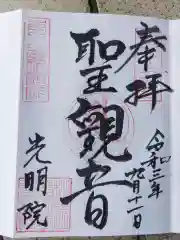 奉拝
令和三年
九月十一日
聖観音
光明院